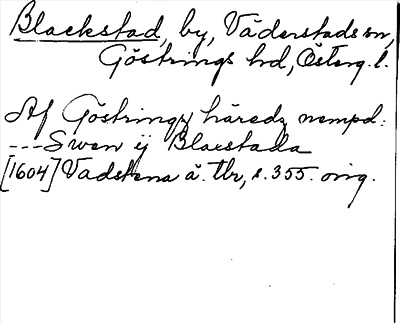 Blackstad, by, Väderstads sn,
Göstrings hd, Österg. l.
Af Göstrings häredz nempd:
---Swen ij Blacstada
[1604] Vadstena å. tbr, s. 355. orig.